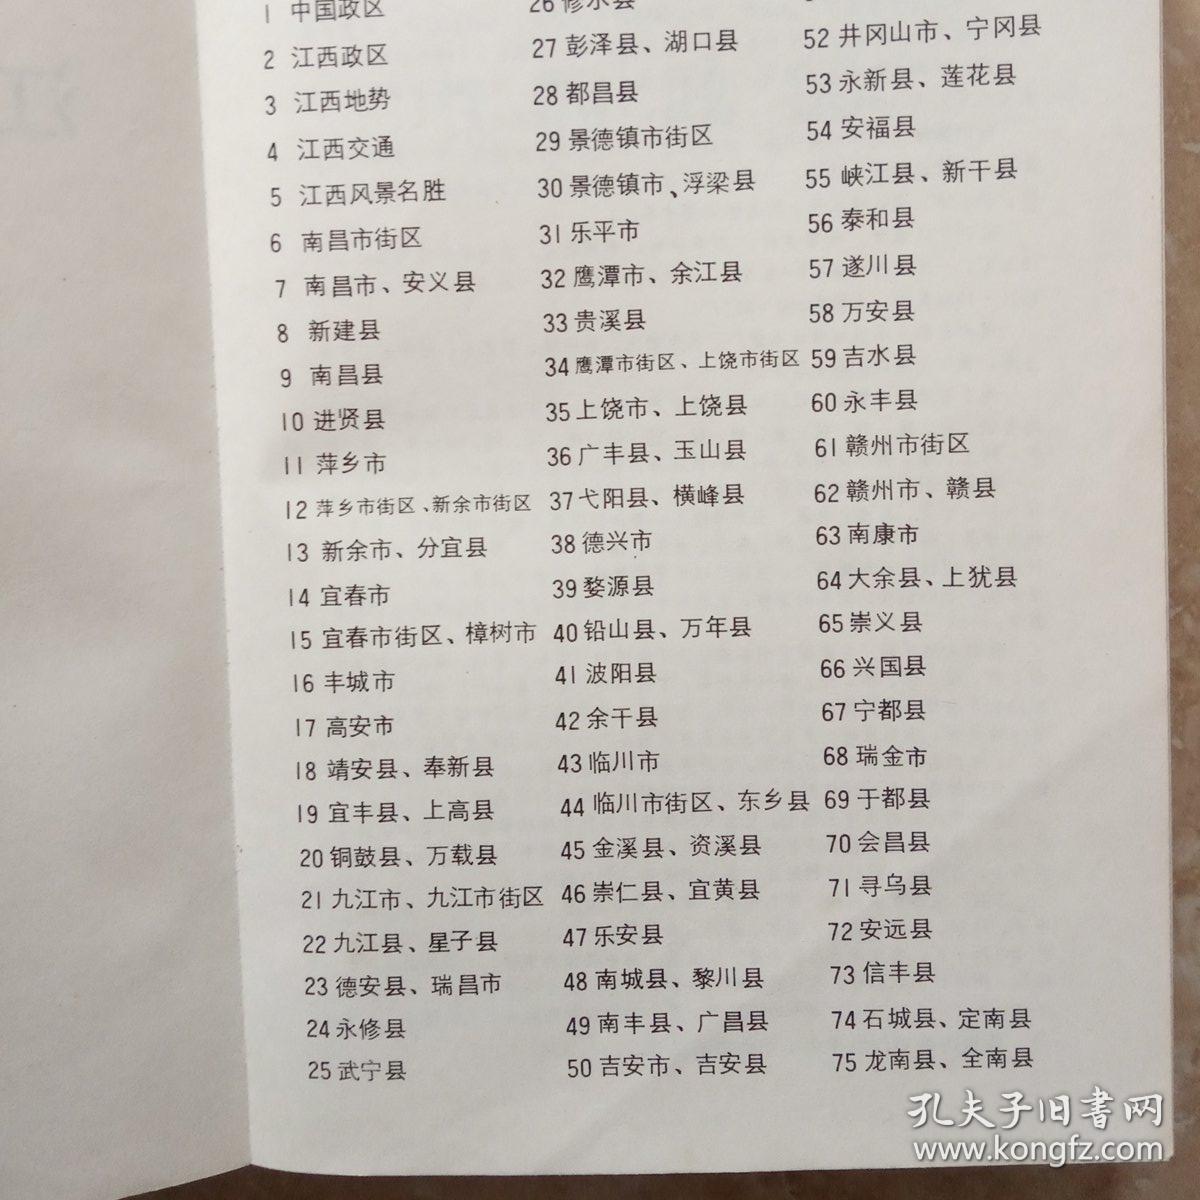 1 中国政区
2 江西政区
3 江西地势
4 江西交通
5 江西风景名胜
6 南昌市街区
7 南昌市、安义县
8 新建县
9 南昌县
10 进贤县
11 萍乡市
12 萍乡市街区、新余市街区
13 新余市、分宜县
14 宜春市
15 宜春市街区、樟树市
16 丰城市
17 高安市
18 靖安县、奉新县
19 宜丰县、上高县
20 铜鼓县、万载县
21 九江市、九江市街区
22 九江县、星子县
23 德安县、瑞昌市
24 永修县
25 武宁县
26 修水县
27 彭泽县、湖口县
28 都昌县
29 景德镇市街区
30 景德镇市、浮梁县
31 乐平市
32 鹰潭市、余江县
33 贵溪县
34 鹰潭市街区、上饶市街区
35 上饶市、上饶县
36 广丰县、玉山县
37 弋阳县、横峰县
38 德兴市
39 婺源县
40 铅山县、万年县
41 波阳县
42 余干县
43 临川市
44 临川市街区、东乡县
45 金溪县、资溪县
46 崇仁县、宜黄县
47 乐安县
48 南城县、黎川县
49 南丰县、广昌县
50 吉安市、吉安县
52 井冈山市、宁冈县
53 永新县、莲花县
54 安福县
55 峡江县、新干县
56 泰和县
57 遂川县
58 万安县
59 吉水县
60 永丰县
61 赣州市街区
62 赣州市、赣县
63 南康市
64 大余县、上犹县
65 崇义县
66 兴国县
67 宁都县
68 瑞金市
69 于都县
70 会昌县
71 寻乌县
72 安远县
73 信丰县
74 石城县、定南县
75 龙南县、全南县
孔夫子旧书网
www.kongfz.com